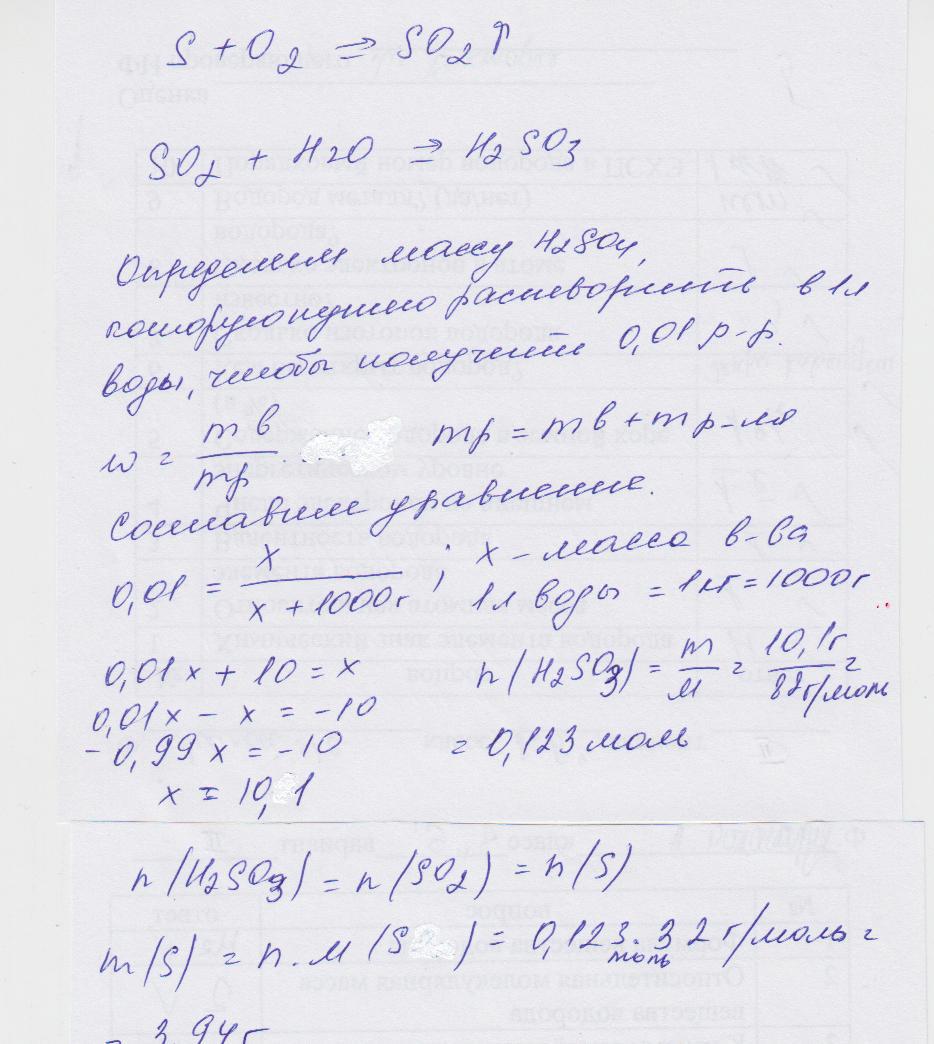 S + O2 → SO2↑
SO2 + H2O → H2SO3
Определим массу H2SO4,
которую нужно растворить в 1л
воды, чтобы получить 0,01 р-р.
w = mв/mр mр = mв + mр-ля
Составим уравнение.
0,01 = x/(x + 1000г) ; x – масса в-ва
1л воды = 1кг = 1000г
0,01x + 10 = x
n(H2SO3) = m/M = 10,1г/82г/моль =
0,01x - x = -10
-0,99x = -10
= 0,123 моль
x = 10,1
n(H2SO3) = n(SO2) = n(S)
m(S) = n·M(S) = 0,123 моль·32г/моль =
= 3,94г